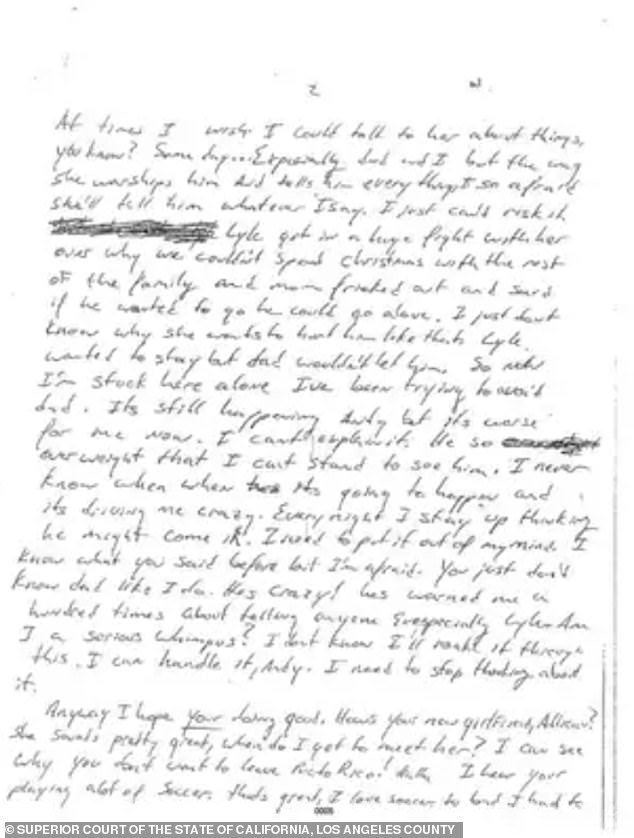 2
At times I wish I could talk to her about things,
you know? Some day... Especially dad and I but the way
she worships him and tells him everything I so afraid
she'll tell him whatever I say. I just can't risk it.
Lyle got in a huge fight with her
over why we couldn't spend Christmas with the rest
of the family and mom freaked out and said
if he wanted to go he could go alone. I just dont
know why she wants to hurt him like that. Lyle
wanted to stay but dad wouldn't let him. So now
I'm stuck here alone I've been trying to avoid
dad. Its still happening Andy but its worse
for me now. I can't explain it. He so
overweight that I cant stand to see him. I never
know when its going to happen and
its driving me crazy. Every night I stay up thinking
he might come in. I need to put it out of my mind. I
know what you said before but I'm afraid. You just don't
know dad like I do. Hes crazy! hes warned me a
hundred times about telling anyone especially Lyle. Am
I a serious whimpus? I dont know I'll make it through
this. I can handle it, Andy. I need to stop thinking about
it.
Anyway I hope your doing good. Hows your new girlfriend,
She sounds pretty great, when do I get to meet her? I can see
why you dont want to leave Puerto Rico! I hear your
playing alot of soccer. thats great, I love soccer to but I had to
© SUPERIOR COURT OF THE STATE OF CALIFORNIA, LOS ANGELES COUNTY